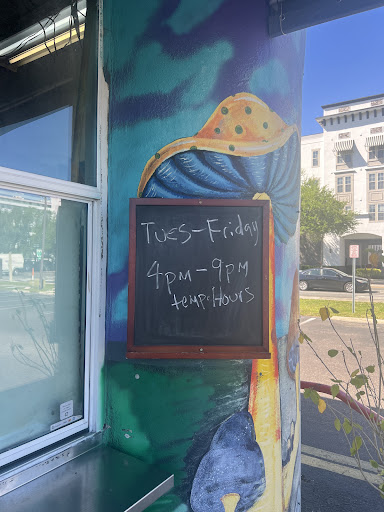 Tues-Friday
4pm-9pm
temp. Hours